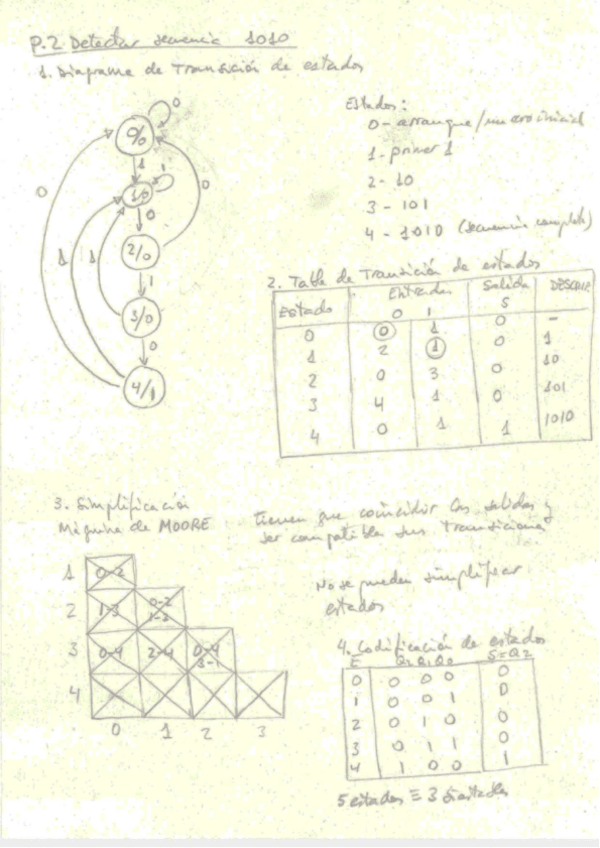 P.2 Detectar secuencia 1010
1. Diagrama de Transición de estados
0
0/0
1
1/0
1
0
0
2/0
0
1
1
1
3/0
0
4/1
Estados:
0 - arranque / numero inicial
1 - primer 1
2 - 10
3 - 101
4 - 1010 (secuencia completa)
2. Tabla de Transición de estados
Estado Entradas Salida DESCRIP
0 1 S
0 0 1 0 -
1 2 1 0 1
2 0 3 0 10
3 4 1 0 101
4 0 1 1 1010
3. Simplificación
Máquina de MOORE
tienen que coincidir las salidas y
ser compatible sus transiciones
No se pueden simplificar
estados
1 0-2
2 1-3 0-2 1-3
3 0-4 2-4 0-4 3-1
4
0 1 2 3
4. Codificación de estados
E Q2 Q1 Q0 S=Q2
0 0 0 0 0
1 0 0 1 0
2 0 1 0 0
3 0 1 1 0
4 1 0 0 1
5 estados ≡ 3 biestables